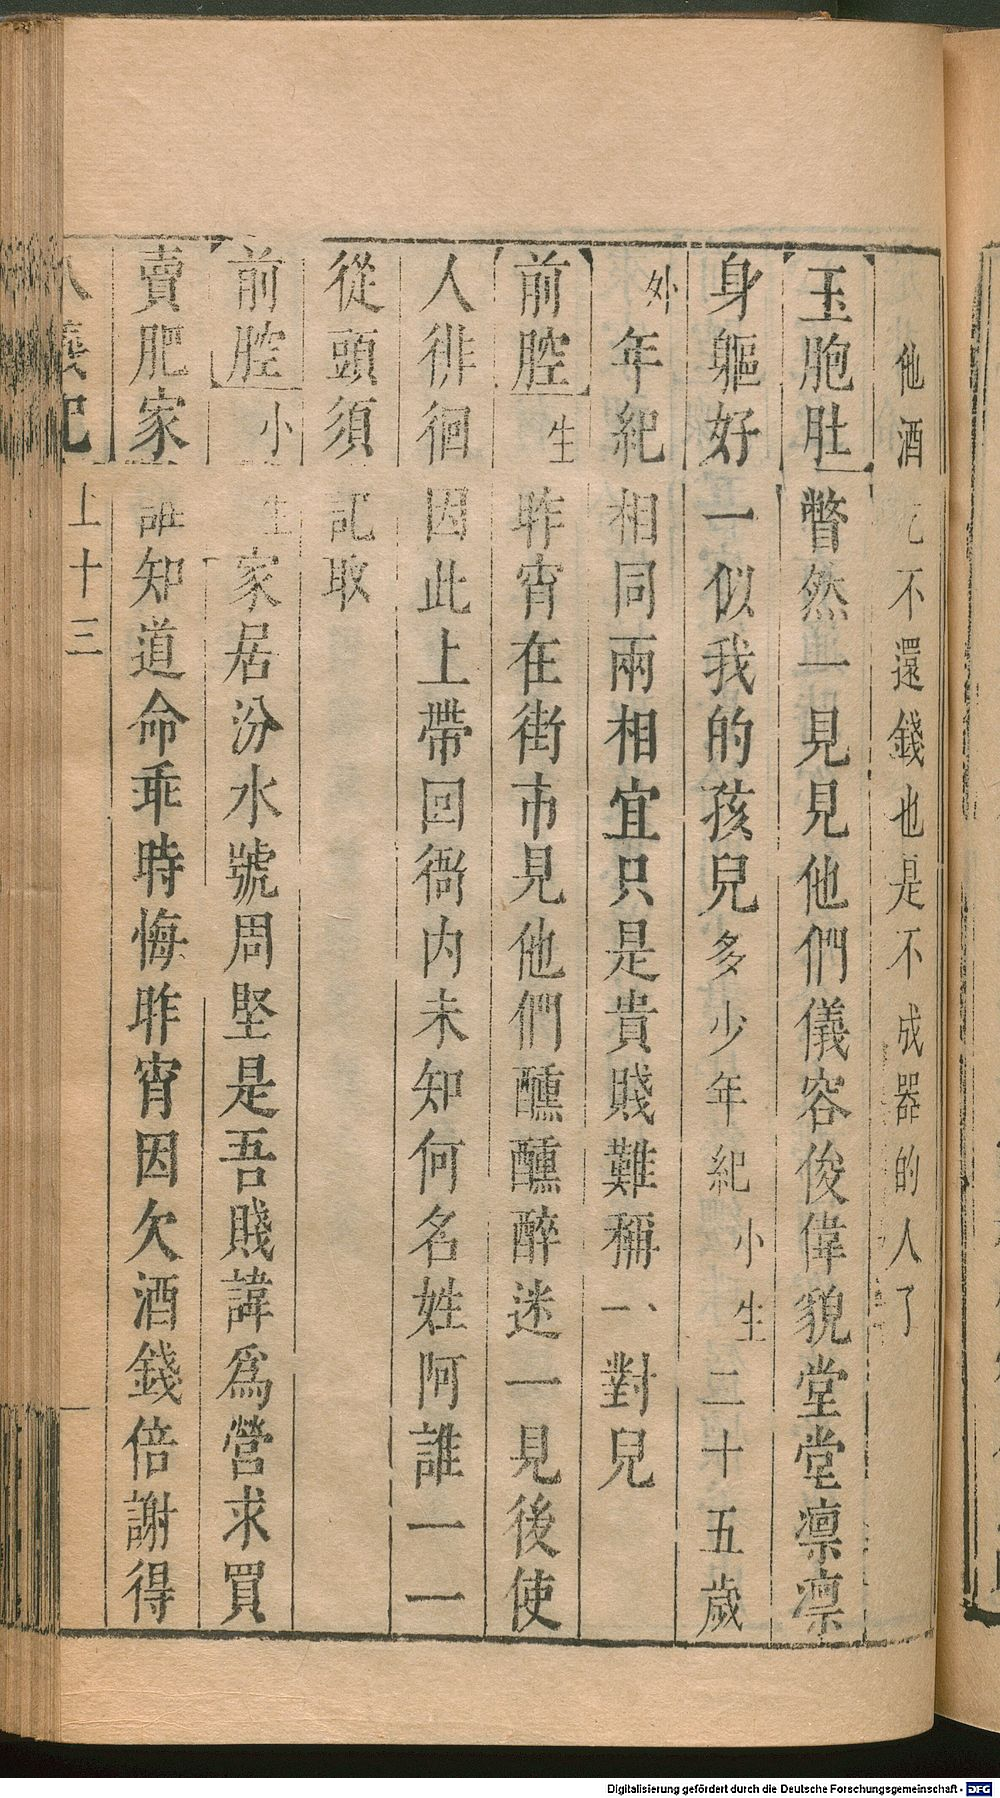 他酒吃不還錢也是不成器的人了
玉胞肚瞥然一見見他們儀容俊偉貌堂堂凛凛
身軀好一似我的孩兒多少年紀小生二十五歲
外年紀相同兩相宜只是貴賤難稱一對兒
前腔生昨宵在街市見他們醺醺醉迷一見後使
人徘徊因此上帶回衙内未知何名姓阿誰一一
從頭須記取
前腔小生家居汾水號周堅是吾賤諱爲營求買
賣肥家誰知道命乖時悔昨宵因欠酒錢倍謝得
八義記
上十三
Digitalisierung gefördert durch die Deutsche Forschungsgemeinschaft - DFG